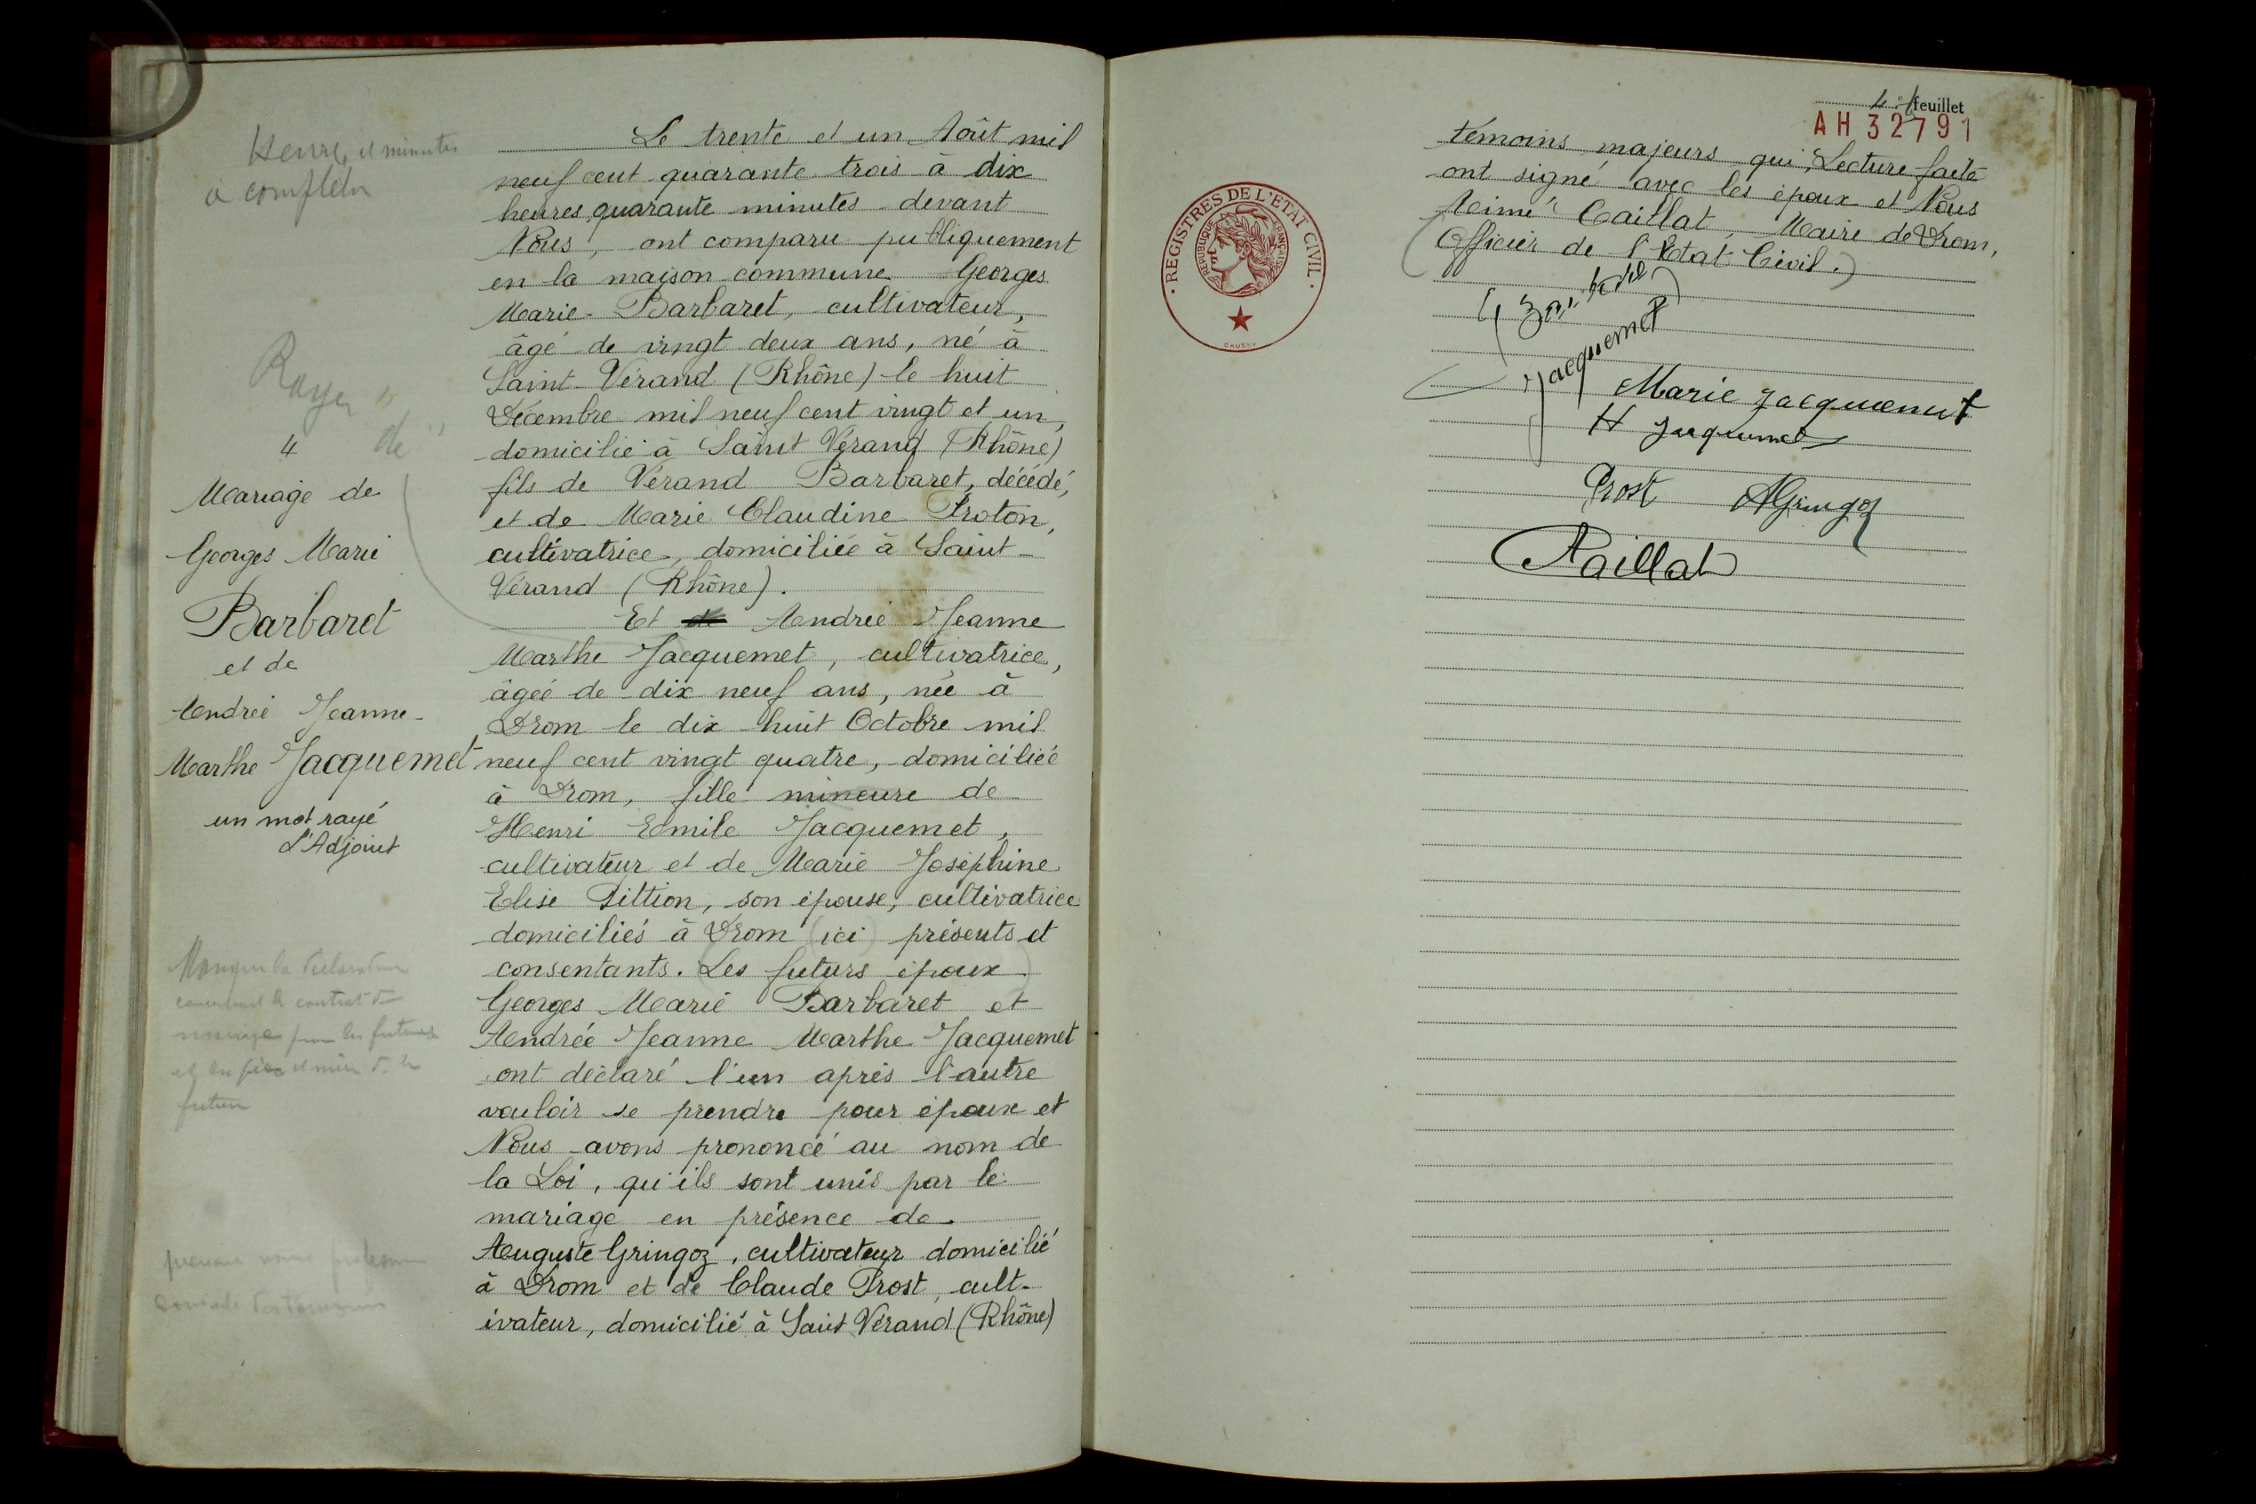 Heures et minutes
à compléter
Rayer "
de "
4
Mariage de
Georges Marie
Barbaret
et de
Andrée Jeanne
Marthe Jacquemet
un mot rayé
L'Adjoint
Manque la déclaration
concernant le contrat de
mariage pour les futurs
et les père et mère de la
future
Le trente et un Août mil
neuf cent quarante trois à dix
heures quarante minutes devant
Nous, ont comparu publiquement
en la maison commune Georges
Marie Barbaret, cultivateur,
âgé de vingt deux ans, né à
Saint-Vérand (Rhône) le huit
Décembre mil neuf cent vingt et un,
domicilié à Saint Vérand (Rhône)
fils de Vérand Barbaret, décédé,
et de Marie Claudine Proton,
cultivatrice, domiciliée à Saint-
Vérand (Rhône).
Et de Andrée Jeanne
Marthe Jacquemet, cultivatrice,
âgée de dix neuf ans, née à
Drom le dix huit Octobre mil
neuf cent vingt quatre, domiciliée
à Drom, fille mineure de
Henri Emile Jacquemet,
cultivateur et de Marie Joséphine
Elise Pittion, son épouse, cultivatrice
domiciliés à Drom (ici) présents et
consentants. Les futurs époux
Georges Marie Barbaret et
Andrée Jeanne Marthe Jacquemet
ont déclaré l'un après l'autre
vouloir se prendre pour époux et
Nous avons prononcé au nom de
la Loi, qu'ils sont unis par le
mariage en présence de
Auguste Gringoz, cultivateur domicilié
à Drom et de Claude Prost, cult-
ivateur, domicilié à Saint Vérand (Rhône)
4e feuillet
AH 32791
témoins majeurs qui, Lecture faite
ont signé avec les époux et Nous
Aimé Caillat, Maire de Drom,
(Officier de l'Etat Civil.)
REGISTRES DE L'ETAT CIVIL
REPUBLIQUE FRANÇAISE
Jacquemet
Marie Jacquemet
H Jacquemet
Prost AGringoz
ACaillat